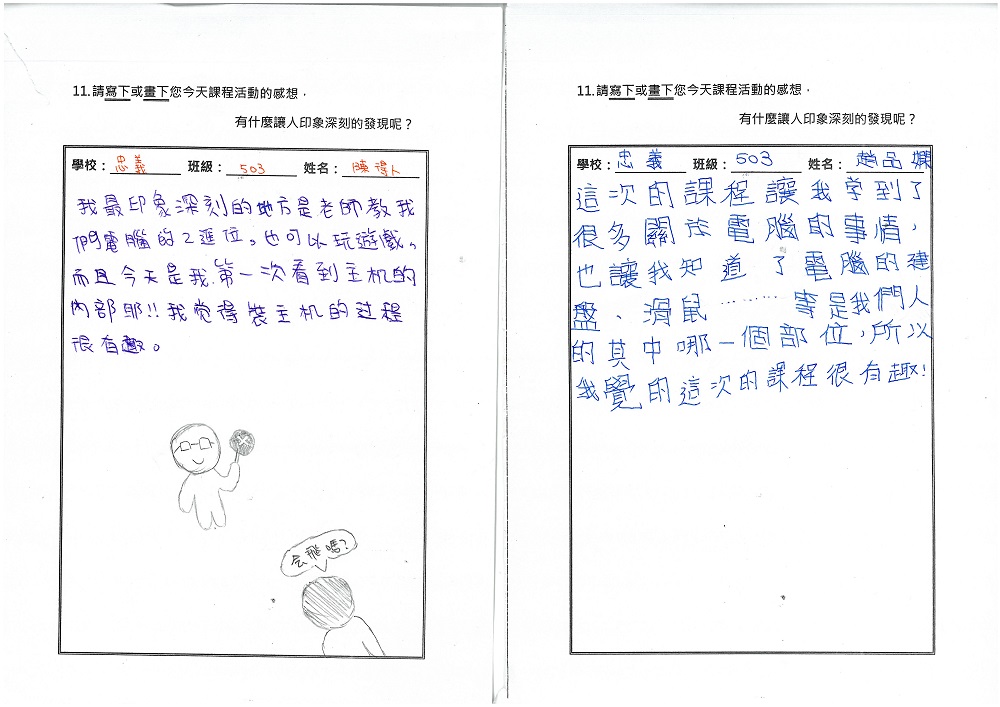 11.請寫下或畫下您今天課程活動的感想，
有什麼讓人印象深刻的發現呢？
學校：忠義 班級：503 姓名：陳得人
我最印象深刻的地方是老師教我
們電腦的2進位。也可以玩遊戲。
而且今天是我第一次看到主机的
內部耶!!我觉得裝主机的过程
很有趣。
会飛嗎?
11.請寫下或畫下您今天課程活動的感想，
有什麼讓人印象深刻的發現呢？
學校：忠義 班級：503 姓名：趙品嫻
這次的課程讓我学到了
很多關於電腦的事情，
也讓我知道了電腦的建
盤、滑鼠………等是我們人
的其中哪一個部位，所以
我覺的這次的課程很有趣!